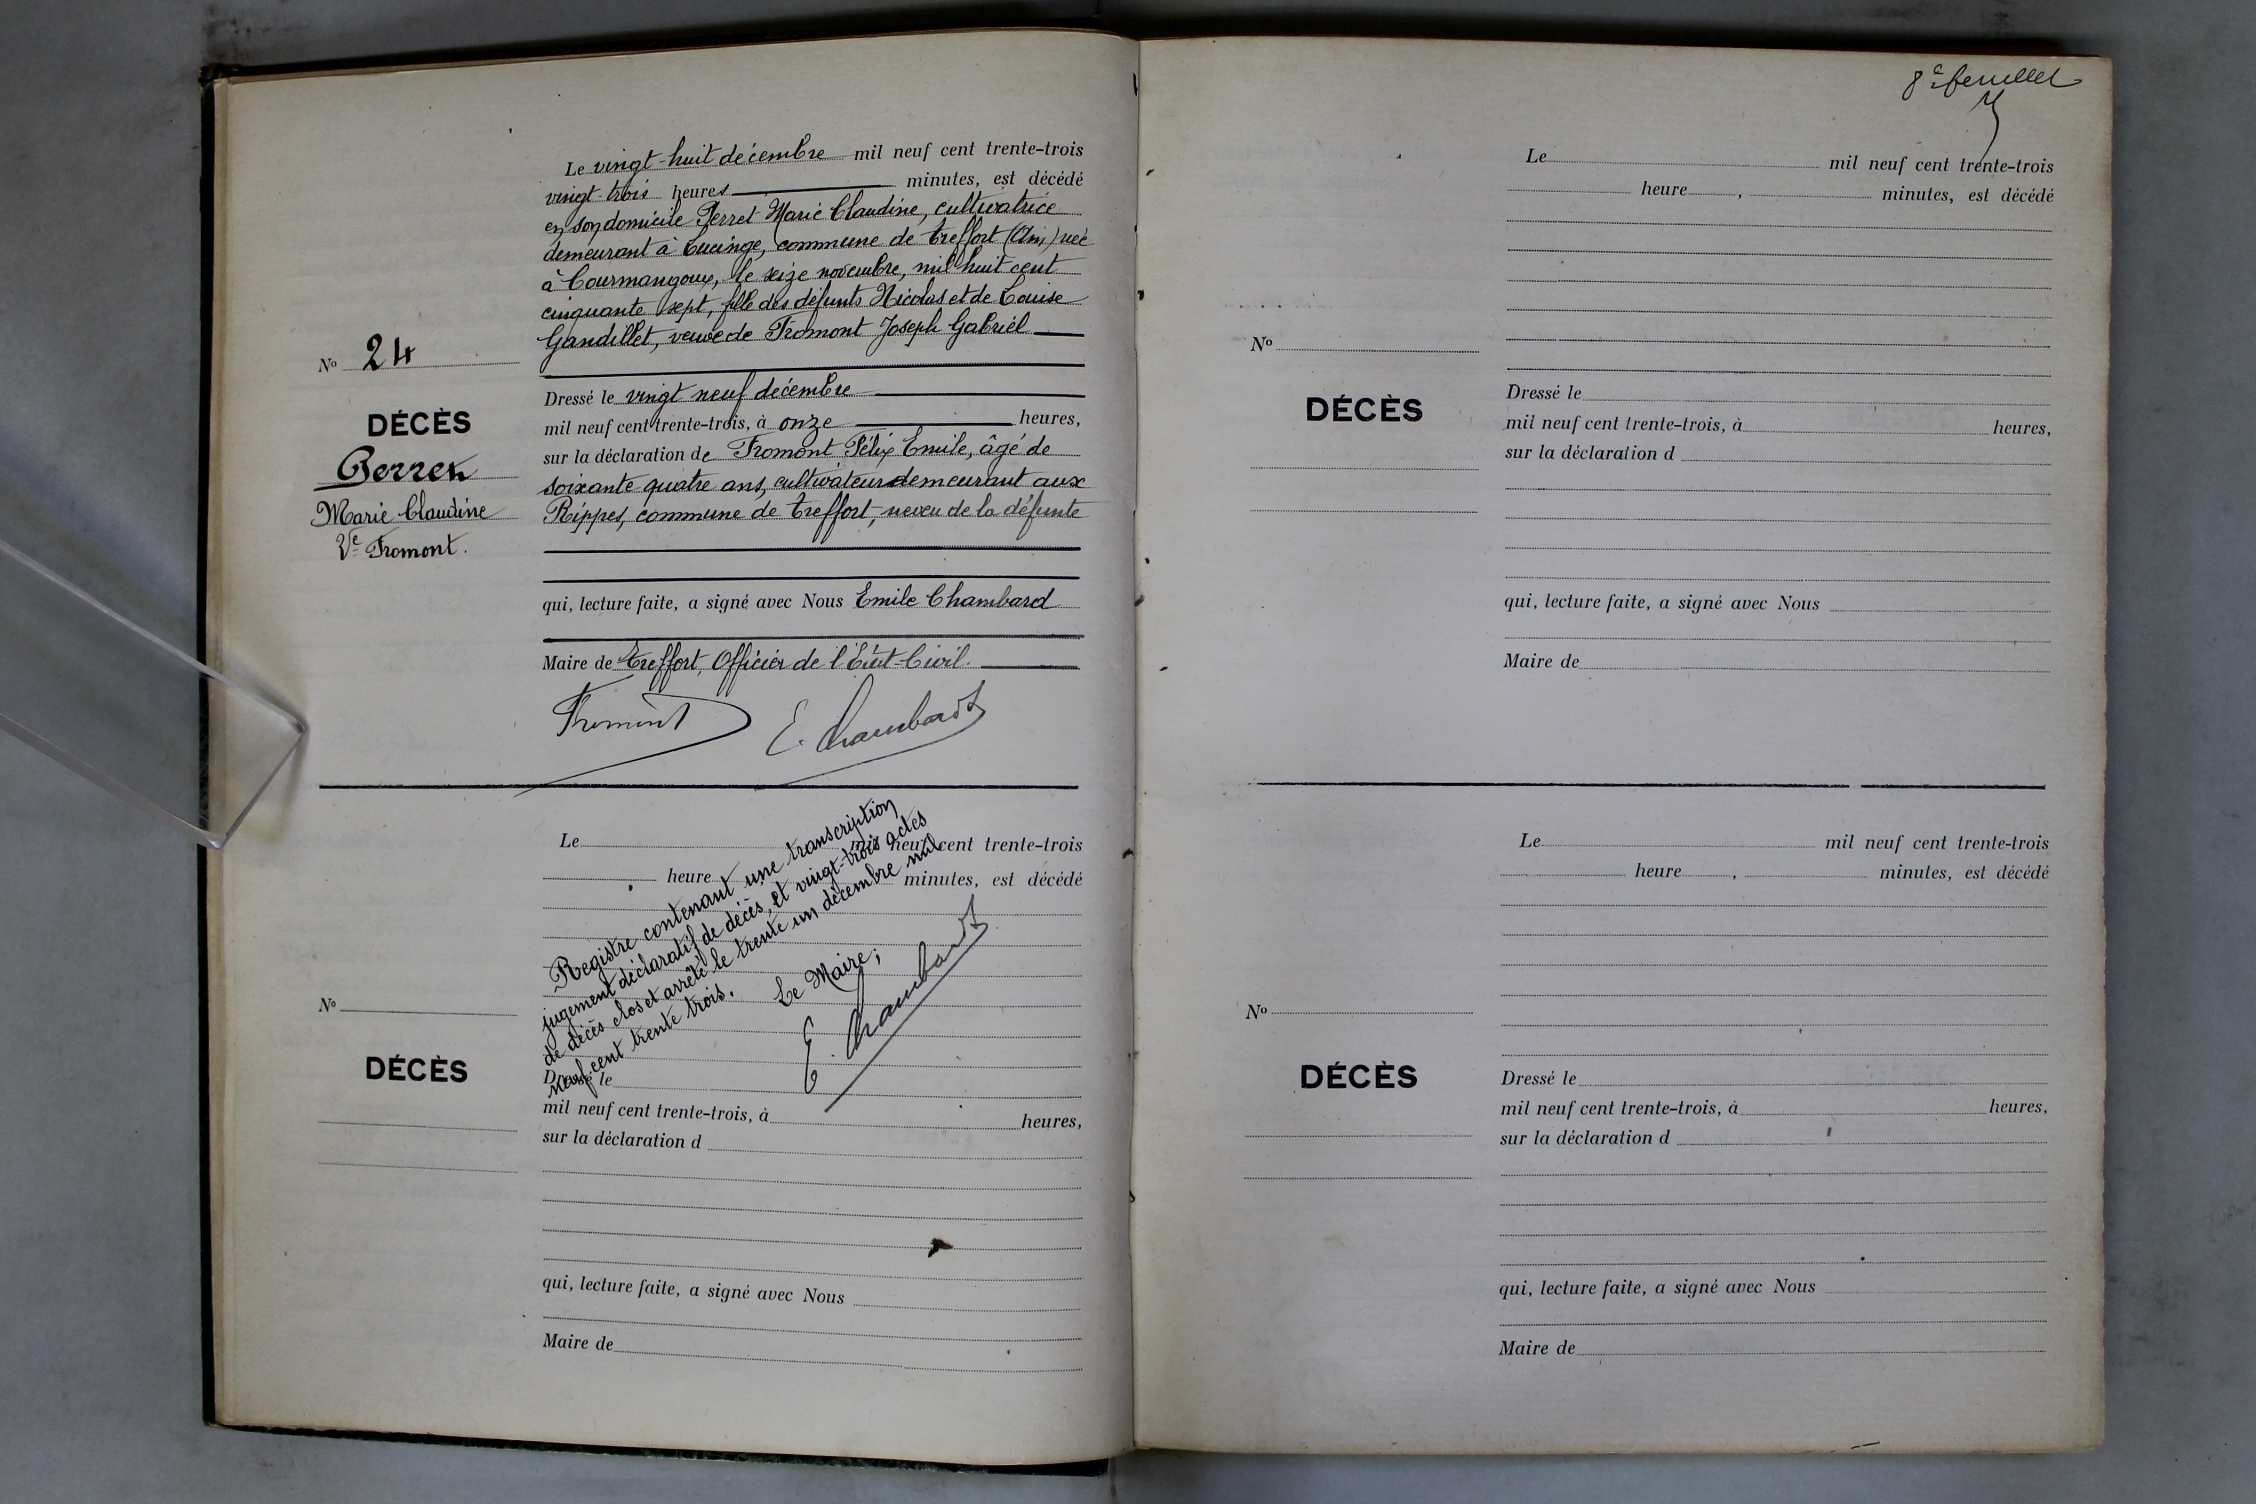 Le vingt-huit décembre mil neuf cent trente-trois
vingt-trois heures minutes, est décédé
en son domicile Perret Marie Claudine, cultivatrice
demeurant à Lucinge, commune de Treffort (Ain) née
à Courmangoux, le seize novembre, mil huit cent
cinquante sept, fille des défunts Nicolas et de Louise
Gandillet, veuve de Fromont Joseph Gabriel
Nº 24
DÉCÈS
Perret
Marie Claudine
Vᵉ Fromont.
Dressé le vingt neuf décembre
mil neuf cent trente-trois, à onze heures,
sur la déclaration de Fromont Félix Emile, âgé de
soixante quatre ans, cultivateur demeurant aux
Rippes, commune de Treffort, neveu de la défunte
qui, lecture faite, a signé avec Nous Emile Chambard
Maire de Treffort, Officier de l'État-Civil.
Fromont E. Chambard
Le mil neuf cent trente-trois
heure minutes, est décédé
Registre contenant une transcription
jugement déclaratif de décès, et vingt-trois actes
de décès clos et arrêté le trente un décembre mil
neuf cent trente trois.
Le Maire;
E. Chambard
Nº
DÉCÈS
Dressé le
mil neuf cent trente-trois, à heures,
sur la déclaration d
qui, lecture faite, a signé avec Nous
Maire de
8ᵉ feuillet
Le mil neuf cent trente-trois
heure , minutes, est décédé
Nº
DÉCÈS
Dressé le
mil neuf cent trente-trois, à heures,
sur la déclaration d
qui, lecture faite, a signé avec Nous
Maire de
Le mil neuf cent trente-trois
heure , minutes, est décédé
Nº
DÉCÈS
Dressé le
mil neuf cent trente-trois, à heures,
sur la déclaration d
qui, lecture faite, a signé avec Nous
Maire de